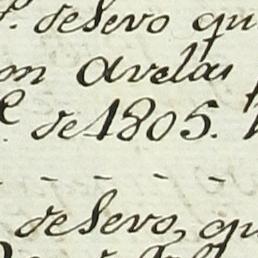 de Sevo qu
on avelas
de 1805.
de Sevo, qu